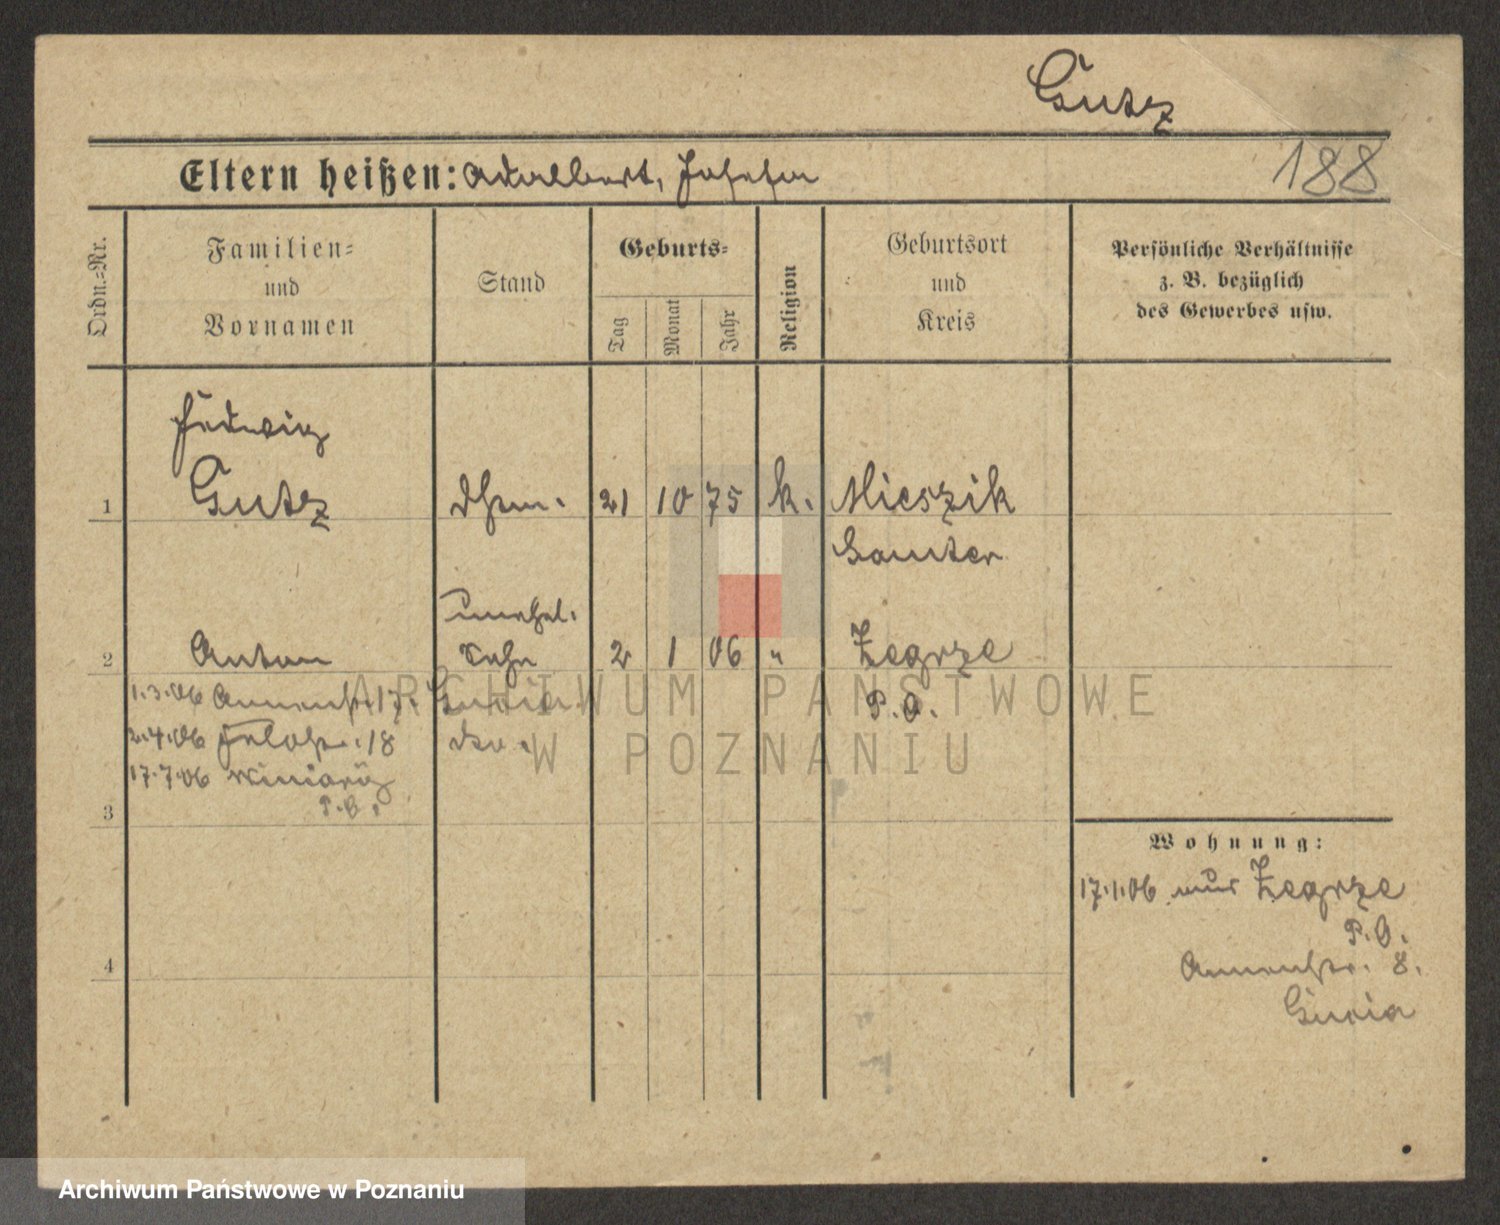 Gutsz
188
Eltern heißen: Adalbert, Josefa
Ordn.=Nr.
Familien=
und
Vornamen
Stand
Geburts=
Tag
Monat
Jahr
Religion
Geburtsort
und
Kreis
Persönliche Verhältnisse
z. B. bezüglich
des Gewerbes usw.
Hedwig
1 21 10 75 k.
Samter
unehel.
2 Anton Sohn 2 1 06 " Zegrze
P. O.
1.3.06 Annenstr. 17. Gurtsch
2.4.06 Feldstr. 18 do.
17.7.06 Winiary
P. O.
3
Wohnung:
17.1.06 aus Zegrze
P. O.
4
Annenstr. 8.
ARCHIWUM PAŃSTWOWE
W POZNANIU
Archiwum Państwowe w Poznaniu